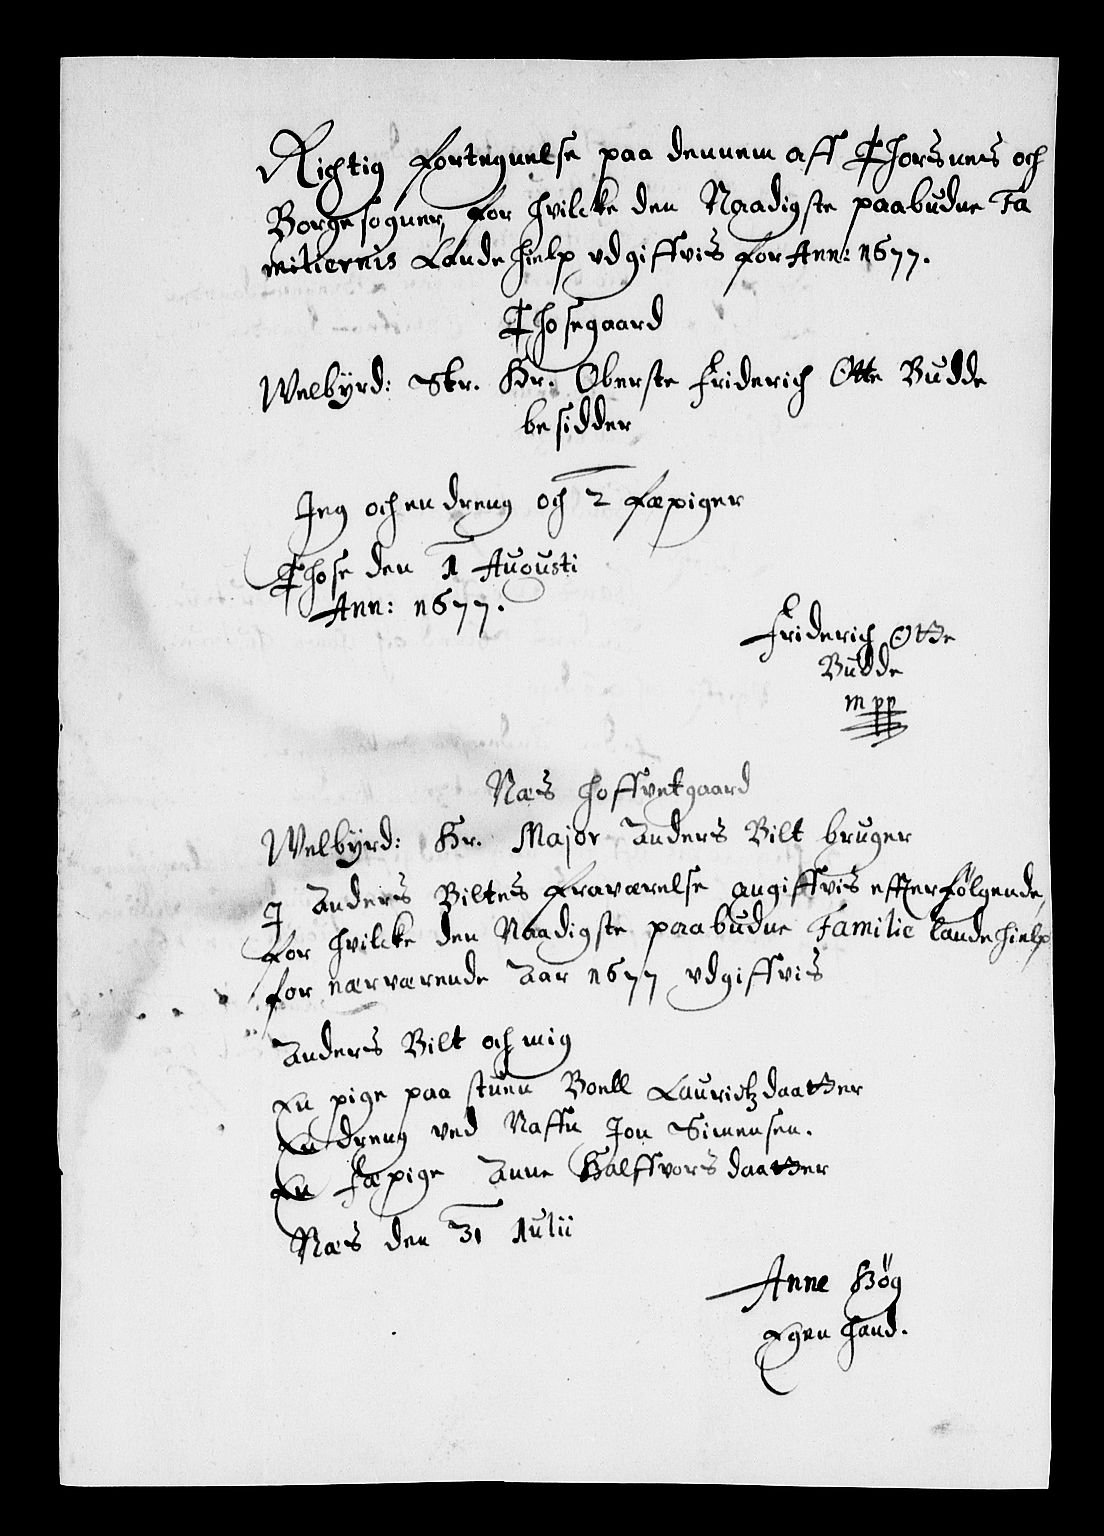 Richtig fortegnelse paa dennem aff Thorsnes och
Borge sogner, for huilcke den Naadigste paabudne Fa
mitiernis Lande hielp udgiffvis for Ann: 1677.
Thosegaard
Welbÿrd: Str. Hr. Oberste Friderich Otte Budde
besidder
Jeg och en dreng och 2 fæpiger
Those den 1 Augusti
Ann: 1677.
Friderich Otte
Budde
mpp
Næs hoffvetgaard
Welbÿrd: Hr. Major Anders Bilt bruger
J Anders Biltes fraværelse angiffvis effterfølgende,
for hvilcke den Naadigste paabudne Familie landehielp
for nærværende Aar 1677 udgiffvis
Anders Bilt och mig
En pige paa stuen Boell Lauridtzdaatter
En dreng ved Naffn Jon Simensen.
En fæpige Anne Halffvorsdaatter
Næs den 31 Julii
Anne Høg
Egen hand.